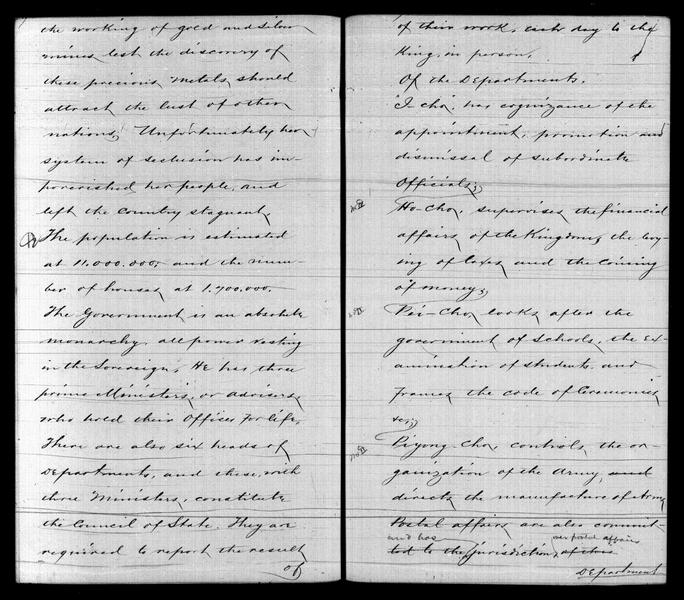 the working of gold and silver
mines lest the discovery of
these precious metals, should
attract the lust of other
nations. Unfortunately her
system of seclusion has im-
poverished her people, and
left the country stagnant.
The population is estimated
at 11.000.000, and the num-
ber of houses at 1.700.000.
The Government is an absolute
monarchy, all power resting
in the Sovereign, He has three
prime Ministers, or advisers,
who hold their offices for life.
There are also six heads of
Departments, and these, with
three Ministers, constitute
the Council of State. They are
required to report the result
of
of their work, each day to the
King, in person.
Of the Departments.
"I-cho", has cognizance of the
appointment, promotion and
dismissal of subordinate
Officials;
Ho-Cho, supervises the financial
affairs of the Kingdom, the lay-
ing of taxes and the coining
of money;
Rei-Cho, looks after the
government of schools, the ex-
amination of students and
frames the code of Ceremonies
&c;
Piyong-Cho, controls the or-
ganization of the Army, and
directs the manufacture of Arms,
Postal affairs, are also commit-
and has over postal affairs
ted to the jurisdiction, of this
Department